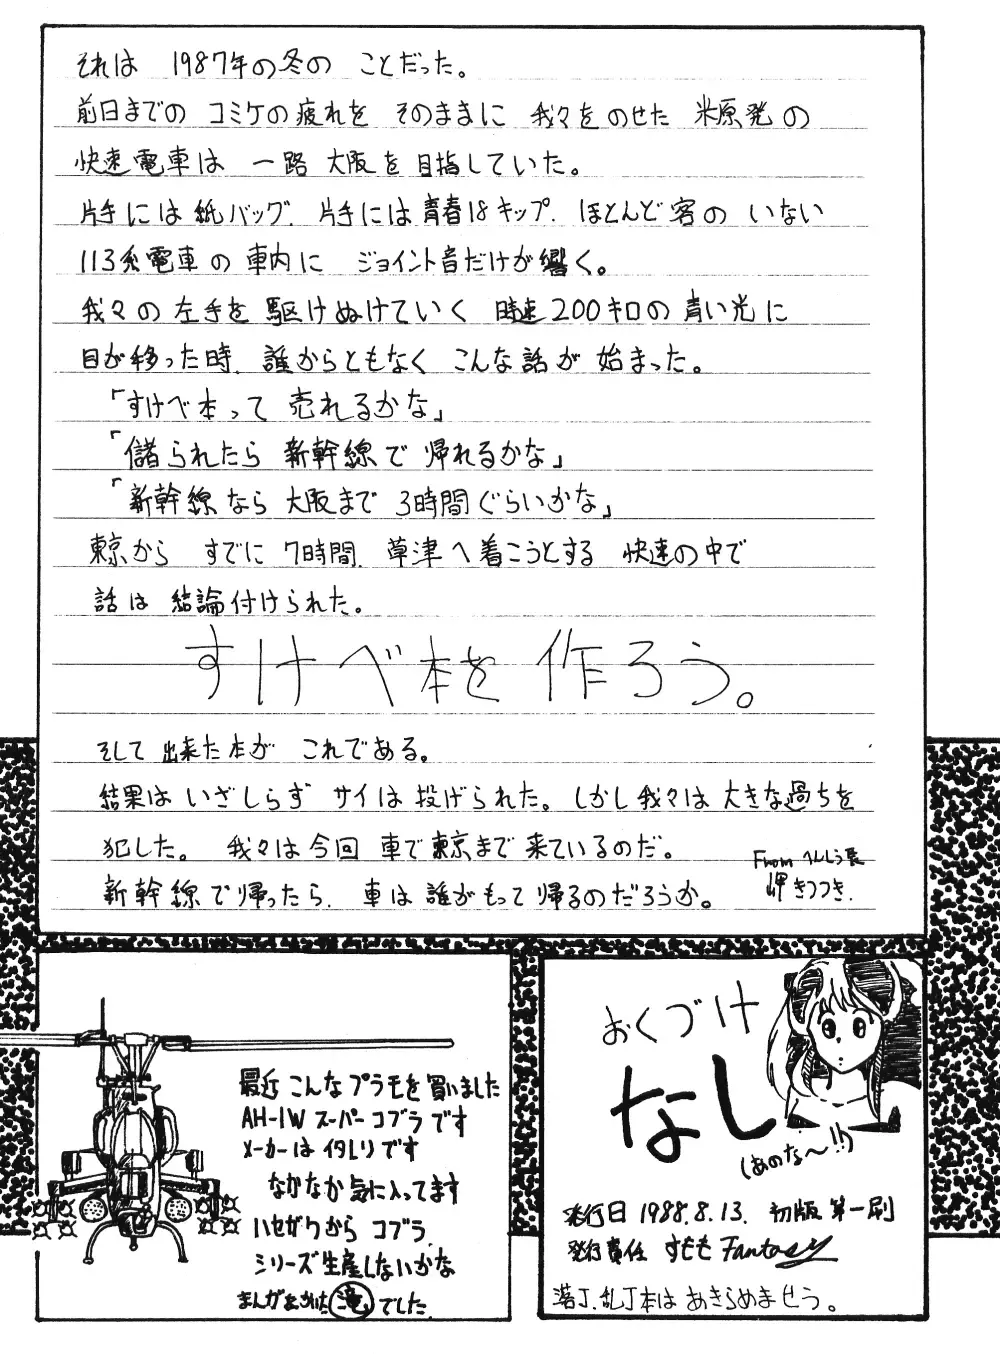 それは 1987年の冬の ことだった。
前日までの コミケの疲れを そのままに 我々をのせた 米原発の
快速電車は 一路 大阪を目指していた。
片手には紙バッグ、片手には青春18キップ、ほとんど客の いない
113系電車の 車内に ジョイント音だけが響く。
我々の左手を 駆けぬけていく 時速200キロの青い光に
目が移った時、誰からともなく こんな話が 始まった。
「すけべ本って 売れるかな」
「儲られたら 新幹線で 帰れるかな」
「新幹線なら 大阪まで 3時間ぐらいかな」
東京から すでに 7時間、草津へ着こうとする 快速の中で
話は 結論付けられた。
すけべ本を作ろう。
そして 出来た本が これである。
結果は いざしらず サイは投げられた。しかし我々は 大きな過ちを
犯した。 我々は今回 車で東京まで来ているのだ。
新幹線で帰ったら、車は 誰がもって帰るのだろうか。
From へんしう長
岬きつつき.
最近 こんなプラモを買いました
AH-1W スーパーコブラです
メーカーはイタレリです
なかなか気に入ってます
ハセガワから コブラ
シリーズ生産しないかな
まんがをかいた 滝 でした.
おくづけ
なし
(あのな〜!!)
発行日 1988.8.13. 初版 第一刷
発行責任 すもも Fantasy
落丁、乱丁本は あきらめませう。